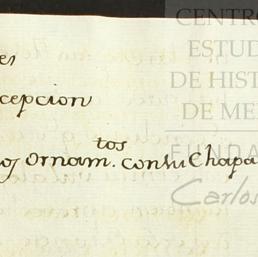 CENTRO
ESTUD
DE HIST
DE ME
FUNDA
Carlos
es
cepcion
os Ornam.tos con su Chapa